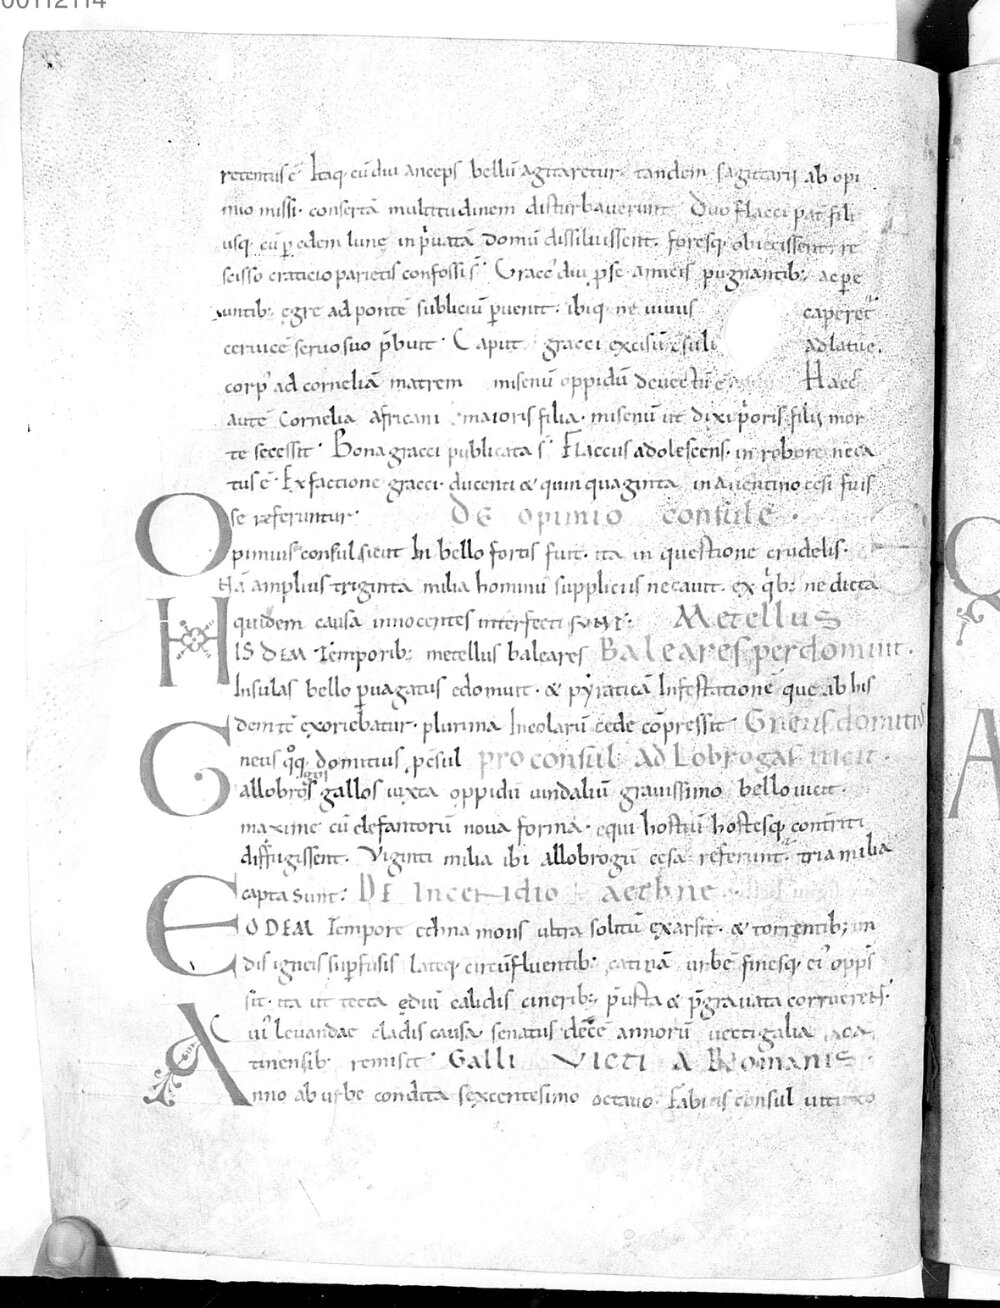 00112114
retentus ē Itaq; cū diu anceps bellū agitaretur· tandem sagittarij ab opi
mio missi· consertā multitudinem disturbauerunt· Duo flacci pat̄ fili
usq; cū p̱ edem lunę in p̓uatā domū dissiluissent· foresq; obiecissent· re
scisso craticio parietis confossi s̄· Gracc᾿ diu ꝓ se amicis pugnantib; ac pe
untib; egre ad pontē subliciū puenit· ibiq; ne uiuus caperet᾿
ceruicē seruo suo p̄buit· Caput gracci excisū c̄suli adlatū ē·
corp᾿ ad corneliā matrem misenū oppidū deuectū ē Haec
autē Cornelia africani maioris filia· misenū ut dixi p̓oris filii mor
te secessit· Bona gracci publicata s̄· Flaccus adolescens· in robore neca
tus ē· Ex factione gracci· ducenti & quinquaginta in auentino cesi fuis
se referuntur· DE opimio consule·
Opimius consul sicut In bello fortis fuit· ita in questione crudelis·
Nā amplius triginta milia hominū suppliciis necauit· ex q̓b; ne dicta
quidem causa innocentes interfecti sunt· Metellus
HISDEM Temporib; metellus baleares Baleares perdomuit·
Insulas bello puagatus edomuit· & pyraticā Infestationē que ab his
dem tc̄ exoriebatur· plurima Incolarū cede cōpressit Gneus domitius
Gneus qq; domitius pc̄sul proconsul adLobrogas uicit·
allobrogas gallos iuxta oppidū uindaliū grauissimo bello uicit·
maxime cū elefantorū noua forma· equi hostiū hostesq; conterriti
diffugissent· Viginti milia ibi allobrogū cesa referunt᾿ tria milia
capta sunt· DE Incendio aethne·
EODEM Tempore ethna mons ultra solitū exarsit· & torrentib; un
dis igneis supfusis lateq; circūfluentib; catinā urbē finesq; ei᾿ opp̄s
sit· ita ut tecta ędiū calidis cinerib; p̄usta & p̄grauata corruerent·
Cui᾿ leuandae cladis causa senatus decē annorū uectigalia ca
tinensib; remisit· Galli Victi A Romanis·
Anno ab urbe condita sexcentesimo octauo Fabius consul uituito